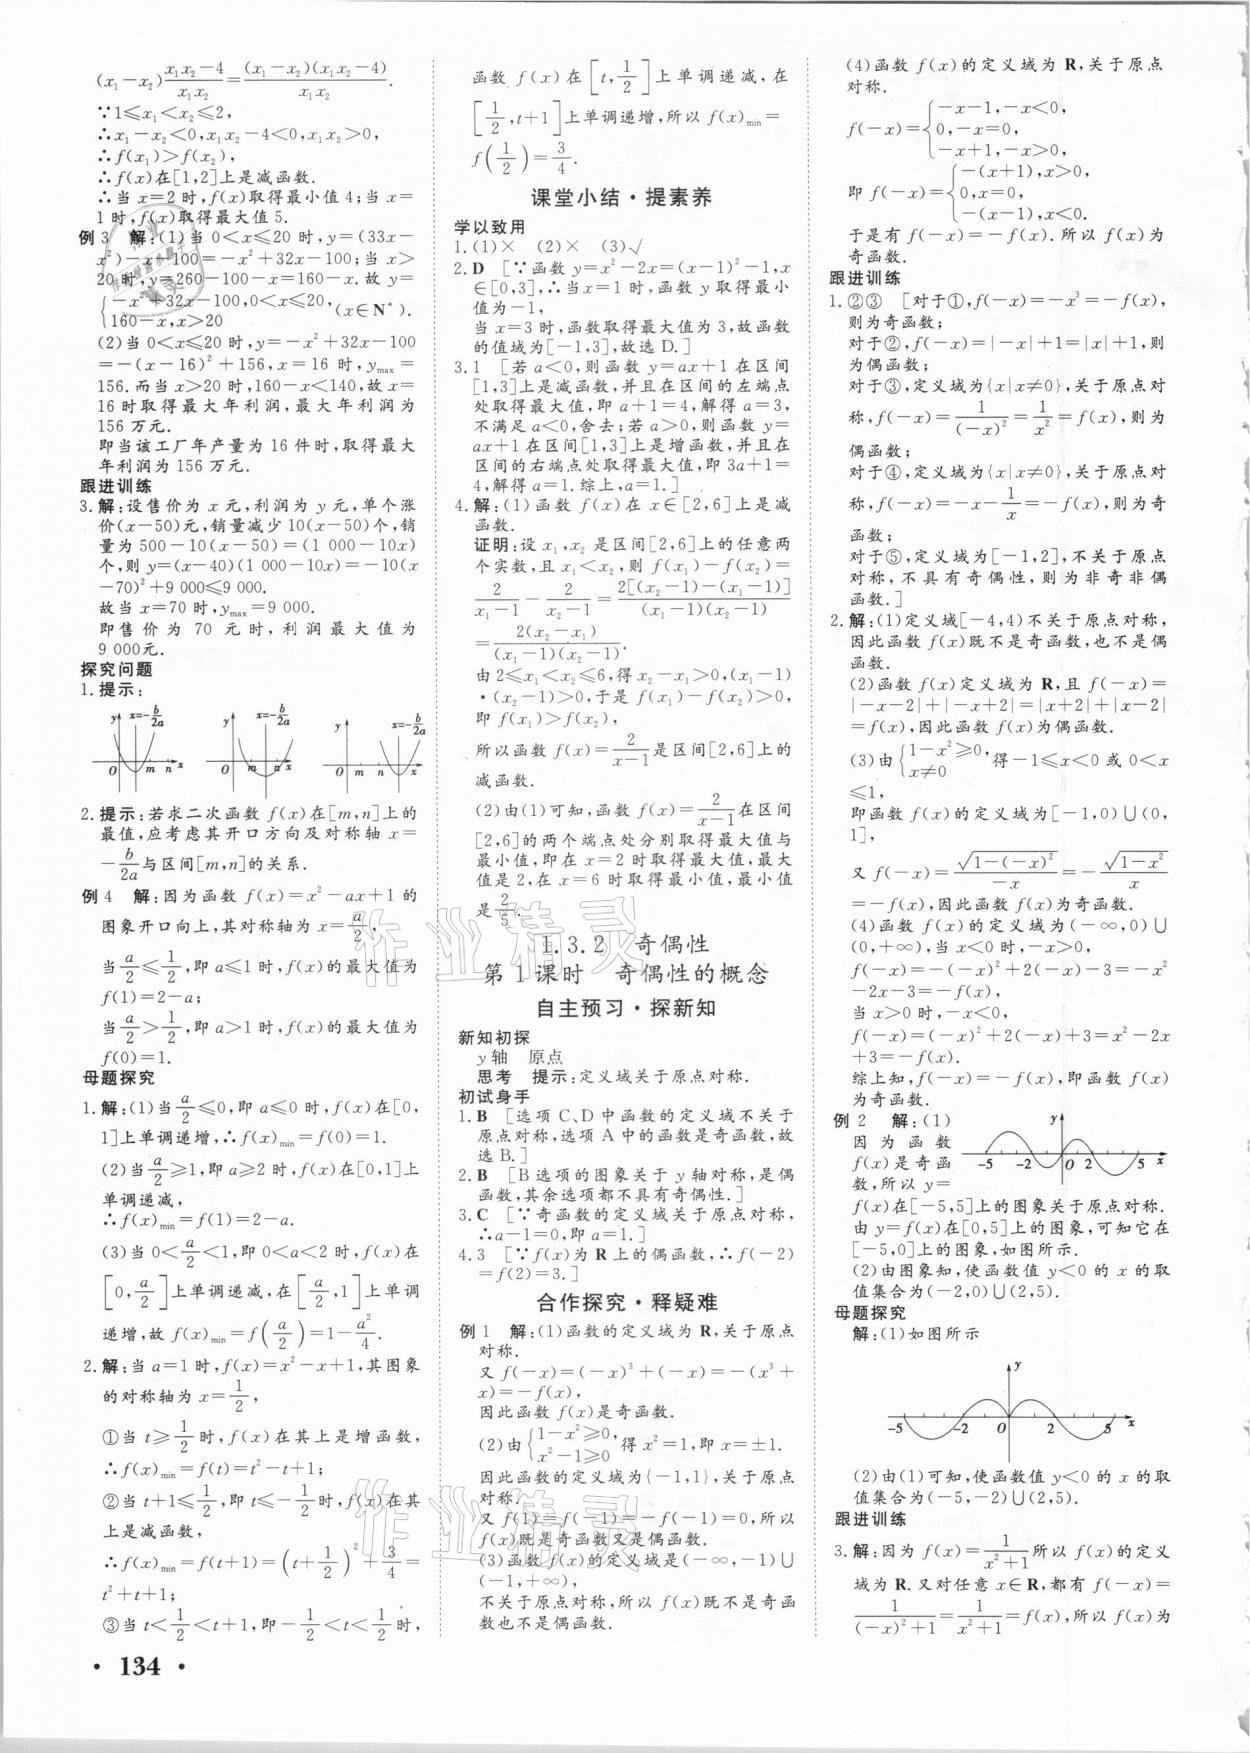 (x₁－x₂)(x₁x₂－4)/(x₁x₂)＝(x₁－x₂)(x₁x₂－4)/(x₁x₂).
∵1≤x₁＜x₂≤2,
∴x₁－x₂＜0,x₁x₂－4＜0,x₁x₂＞0,
∴f(x₁)＞f(x₂),
∴f(x)在[1,2]上是减函数.
∴当 x＝2 时,f(x)取得最小值 4;当 x＝
1 时,f(x)取得最大值 5.
例 3 解:(1)当 0＜x≤20 时,y＝(33x－
x²)－x－100＝－x²＋32x－100;当 x＞
20 时,y＝260－100－x＝160－x.故 y＝
{－x²＋32x－100,0＜x≤20,
160－x,x＞20 (x∈N*).
(2)当 0＜x≤20 时,y＝－x²＋32x－100
＝－(x－16)²＋156,x＝16 时,yₘₐₓ＝
156.而当 x＞20 时,160－x＜140,故 x＝
16 时取得最大年利润,最大年利润为
156 万元.
即当该工厂年产量为 16 件时,取得最大
年利润为 156 万元.
跟进训练
3.解:设售价为 x 元,利润为 y 元,单个涨
价(x－50)元,销量减少 10(x－50)个,销
量为 500－10(x－50)＝(1 000－10x)
个,则 y＝(x－40)(1 000－10x)＝－10(x
－70)²＋9 000≤9 000.
故当 x＝70 时,yₘₐₓ＝9 000.
即售价为 70 元时,利润最大值为
9 000元.
探究问题
1.提示:
x=－b/2a x=－b/2a x=－b/2a
y O m n x y O m n x y O m n x
2.提示:若求二次函数 f(x)在[m,n]上的
最值,应考虑其开口方向及对称轴 x＝
－b/2a与区间[m,n]的关系.
例 4 解:因为函数 f(x)＝x²－ax＋1 的
图象开口向上,其对称轴为 x＝a/2,
当a/2≤1/2,即 a≤1 时,f(x)的最大值为
f(1)＝2－a;
当a/2＞1/2,即 a＞1 时,f(x)的最大值为
f(0)＝1.
母题探究
1.解:(1)当a/2≤0,即 a≤0 时,f(x)在[0,
1]上单调递增,∴f(x)ₘᵢₙ＝f(0)＝1.
(2)当a/2≥1,即 a≥2 时,f(x)在[0,1]上
单调递减,
∴f(x)ₘᵢₙ＝f(1)＝2－a.
(3)当 0＜a/2＜1,即 0＜a＜2 时,f(x)在
[0,a/2]上单调递减,在[a/2,1]上单调
递增,故 f(x)ₘᵢₙ＝f(a/2)＝1－a²/4.
2.解:当 a＝1 时,f(x)＝x²－x＋1,其图象
的对称轴为 x＝1/2,
①当 t≥1/2时,f(x)在其上是增函数,
∴f(x)ₘᵢₙ＝f(t)＝t²－t＋1;
②当 t＋1≤1/2,即 t≤－1/2时,f(x)在其
上是减函数,
∴f(x)ₘᵢₙ＝f(t＋1)＝(t＋1/2)²＋3/4＝
t²＋t＋1;
③当 t＜1/2＜t＋1,即－1/2＜t＜1/2时,
• 134 •
函数 f(x)在[t,1/2]上单调递减,在
[1/2,t＋1]上单调递增,所以 f(x)ₘᵢₙ＝
f(1/2)＝3/4.
课堂小结·提素养
学以致用
1.(1)× (2)× (3)√
2.D [∵函数 y＝x²－2x＝(x－1)²－1,x
∈[0,3],∴当 x＝1 时,函数 y 取得最小
值为－1,
当 x＝3 时,函数取得最大值为 3,故函数
的值域为[－1,3],故选 D.]
3.1 [若 a＜0,则函数 y＝ax＋1 在区间
[1,3]上是减函数,并且在区间的左端点
处取得最大值,即 a＋1＝4,解得 a＝3,
不满足 a＜0,舍去;若 a＞0,则函数 y＝
ax＋1 在区间[1,3]上是增函数,并且在
区间的右端点处取得最大值,即 3a＋1＝
4,解得 a＝1.综上,a＝1.]
4.解:(1)函数 f(x)在 x∈[2,6]上是减
函数.
证明:设 x₁,x₂ 是区间[2,6]上的任意两
个实数,且 x₁＜x₂,则 f(x₁)－f(x₂)＝
2/(x₁－1)－2/(x₂－1)＝2[(x₂－1)－(x₁－1)]/(x₁－1)(x₂－1)
＝2(x₂－x₁)/(x₁－1)(x₂－1).
由 2≤x₁＜x₂≤6,得 x₂－x₁＞0,(x₁－1)
·(x₂－1)＞0,于是 f(x₁)－f(x₂)＞0,
即 f(x₁)＞f(x₂),
所以函数 f(x)＝2/(x－1)是区间[2,6]上的
减函数.
(2)由(1)可知,函数 f(x)＝2/(x－1)在区间
[2,6]的两个端点处分别取得最大值与
最小值,即在 x＝2 时取得最大值,最大
值是 2,在 x＝6 时取得最小值,最小值
是2/5.
1.3.2 奇偶性
第 1 课时 奇偶性的概念
自主预习·探新知
新知初探
y 轴 原点
思考 提示:定义域关于原点对称.
初试身手
1.B [选项 C、D 中函数的定义域不关于
原点对称,选项 A 中的函数是奇函数,故
选 B.]
2.B [B 选项的图象关于 y 轴对称,是偶
函数,其余选项都不具有奇偶性.]
3.C [∵奇函数的定义域关于原点对称,
∴a－1＝0,即 a＝1.]
4.3 [∵f(x)为 R 上的偶函数,∴f(－2)
＝f(2)＝3.]
合作探究·释疑难
例 1 解:(1)函数的定义域为 R,关于原点
对称.
又 f(－x)＝(－x)³＋(－x)＝－(x³＋
x)＝－f(x),
因此函数 f(x)是奇函数.
(2)由{1－x²≥0,
x²－1≥0 得 x²＝1,即 x＝±1.
因此函数的定义域为{－1,1},关于原点
对称.
又 f(1)＝f(－1)＝－f(－1)＝0,所以
f(x)既是奇函数又是偶函数.
(3)函数 f(x)的定义域是(－∞,－1)∪
(－1,＋∞),
不关于原点对称,所以 f(x)既不是奇函
数也不是偶函数.
(4)函数 f(x)的定义域为 R,关于原点
对称.
f(－x)＝{－x－1,－x＜0,
0,－x＝0,
－x＋1,－x＞0,
即 f(－x)＝{－(x＋1),x＞0,
0,x＝0,
－(x－1),x＜0.
于是有 f(－x)＝－f(x).所以 f(x)为
奇函数.
跟进训练
1.②③ [对于①,f(－x)＝－x³＝－f(x),
则为奇函数;
对于②,f(－x)＝|－x|＋1＝|x|＋1,则
为偶函数;
对于③,定义域为{x|x≠0},关于原点对
称,f(－x)＝1/(－x)²＝1/x²＝f(x),则为
偶函数;
对于④,定义域为{x|x≠0},关于原点对
称,f(－x)＝－x－1/x＝－f(x),则为奇
函数;
对于⑤,定义域为[－1,2],不关于原点
对称,不具有奇偶性,则为非奇非偶
函数.]
2.解:(1)定义域[－4,4)不关于原点对称,
因此函数 f(x)既不是奇函数,也不是偶
函数.
(2)函数 f(x)定义域为 R,且 f(－x)＝
|－x－2|＋|－x＋2|＝|x＋2|＋|x－2|
＝f(x),因此函数 f(x)为偶函数.
(3)由{1－x²≥0,
x≠0 得－1≤x＜0 或 0＜x
≤1,
即函数 f(x)的定义域为[－1,0)∪(0,
1],
又 f(－x)＝√(1－(－x)²)/(－x)＝－√(1－x²)/x
＝－f(x),因此函数 f(x)为奇函数.
(4)函数 f(x)的定义域为(－∞,0)∪
(0,＋∞),当 x＜0 时,－x＞0,
f(－x)＝－(－x)²＋2(－x)－3＝－x²
－2x－3＝－f(x),
当 x＞0 时,－x＜0,
f(－x)＝(－x)²＋2(－x)＋3＝x²－2x
＋3＝－f(x).
综上知 f(－x)＝－f(x),即函数 f(x)
为奇函数.
例 2 解:(1)
因为函数
f(x)是奇函
数,所以 y＝
y -5 -2 O 2 5 x
f(x)在[－5,5]上的图象关于原点对称.
由 y＝f(x)在[0,5]上的图象,可知它在
[－5,0]上的图象,如图所示.
(2)由图象知,使函数值 y＜0 的 x 的取
值集合为(－2,0)∪(2,5).
母题探究
解:(1)如图所示
y -5 -2 O 2 5 x
(2)由(1)可知,使函数值 y＜0 的 x 的取
值集合为(－5,－2)∪(2,5).
跟进训练
3.解:因为 f(x)＝1/(x²＋1)所以 f(x)的定义
域为 R.又对任意 x∈R,都有 f(－x)＝
1/((－x)²＋1)＝1/(x²＋1)＝f(x),所以 f(x)为
作业精灵
作业精灵